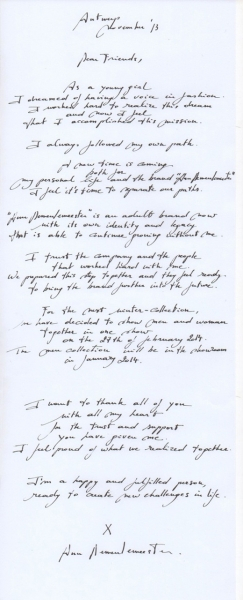 Antwerp
November '13
Dear Friends,
As a young girl
I dreamed of having a voice in fashion.
I worked hard to realize this dream
and now I feel
that I accomplished this mission.
I always followed my own path.
A new time is coming
both for
my personal life and the brand "Ann Demeulemeester"
I feel it's time to separate our paths.
"Ann Demeulemeester" is an adult brand now
with its own identity and legacy
that is able to continue growing without me.
I trust the company and the people
that worked hard with me.
We prepared this step together and they feel ready
to bring the brand further into the future.
For the next winter-collection,
we have decided to show men and woman
together in one show
on the 27th of february 2014.
The men collection will be in the showroom
in January 2014.
I want to thank all of you
with all my heart
for the trust and support
you have given me.
I feel proud of what we realized together.
I'm a happy and fulfilled person,
ready to create new challenges in life.
X
Ann Demeulemeester.